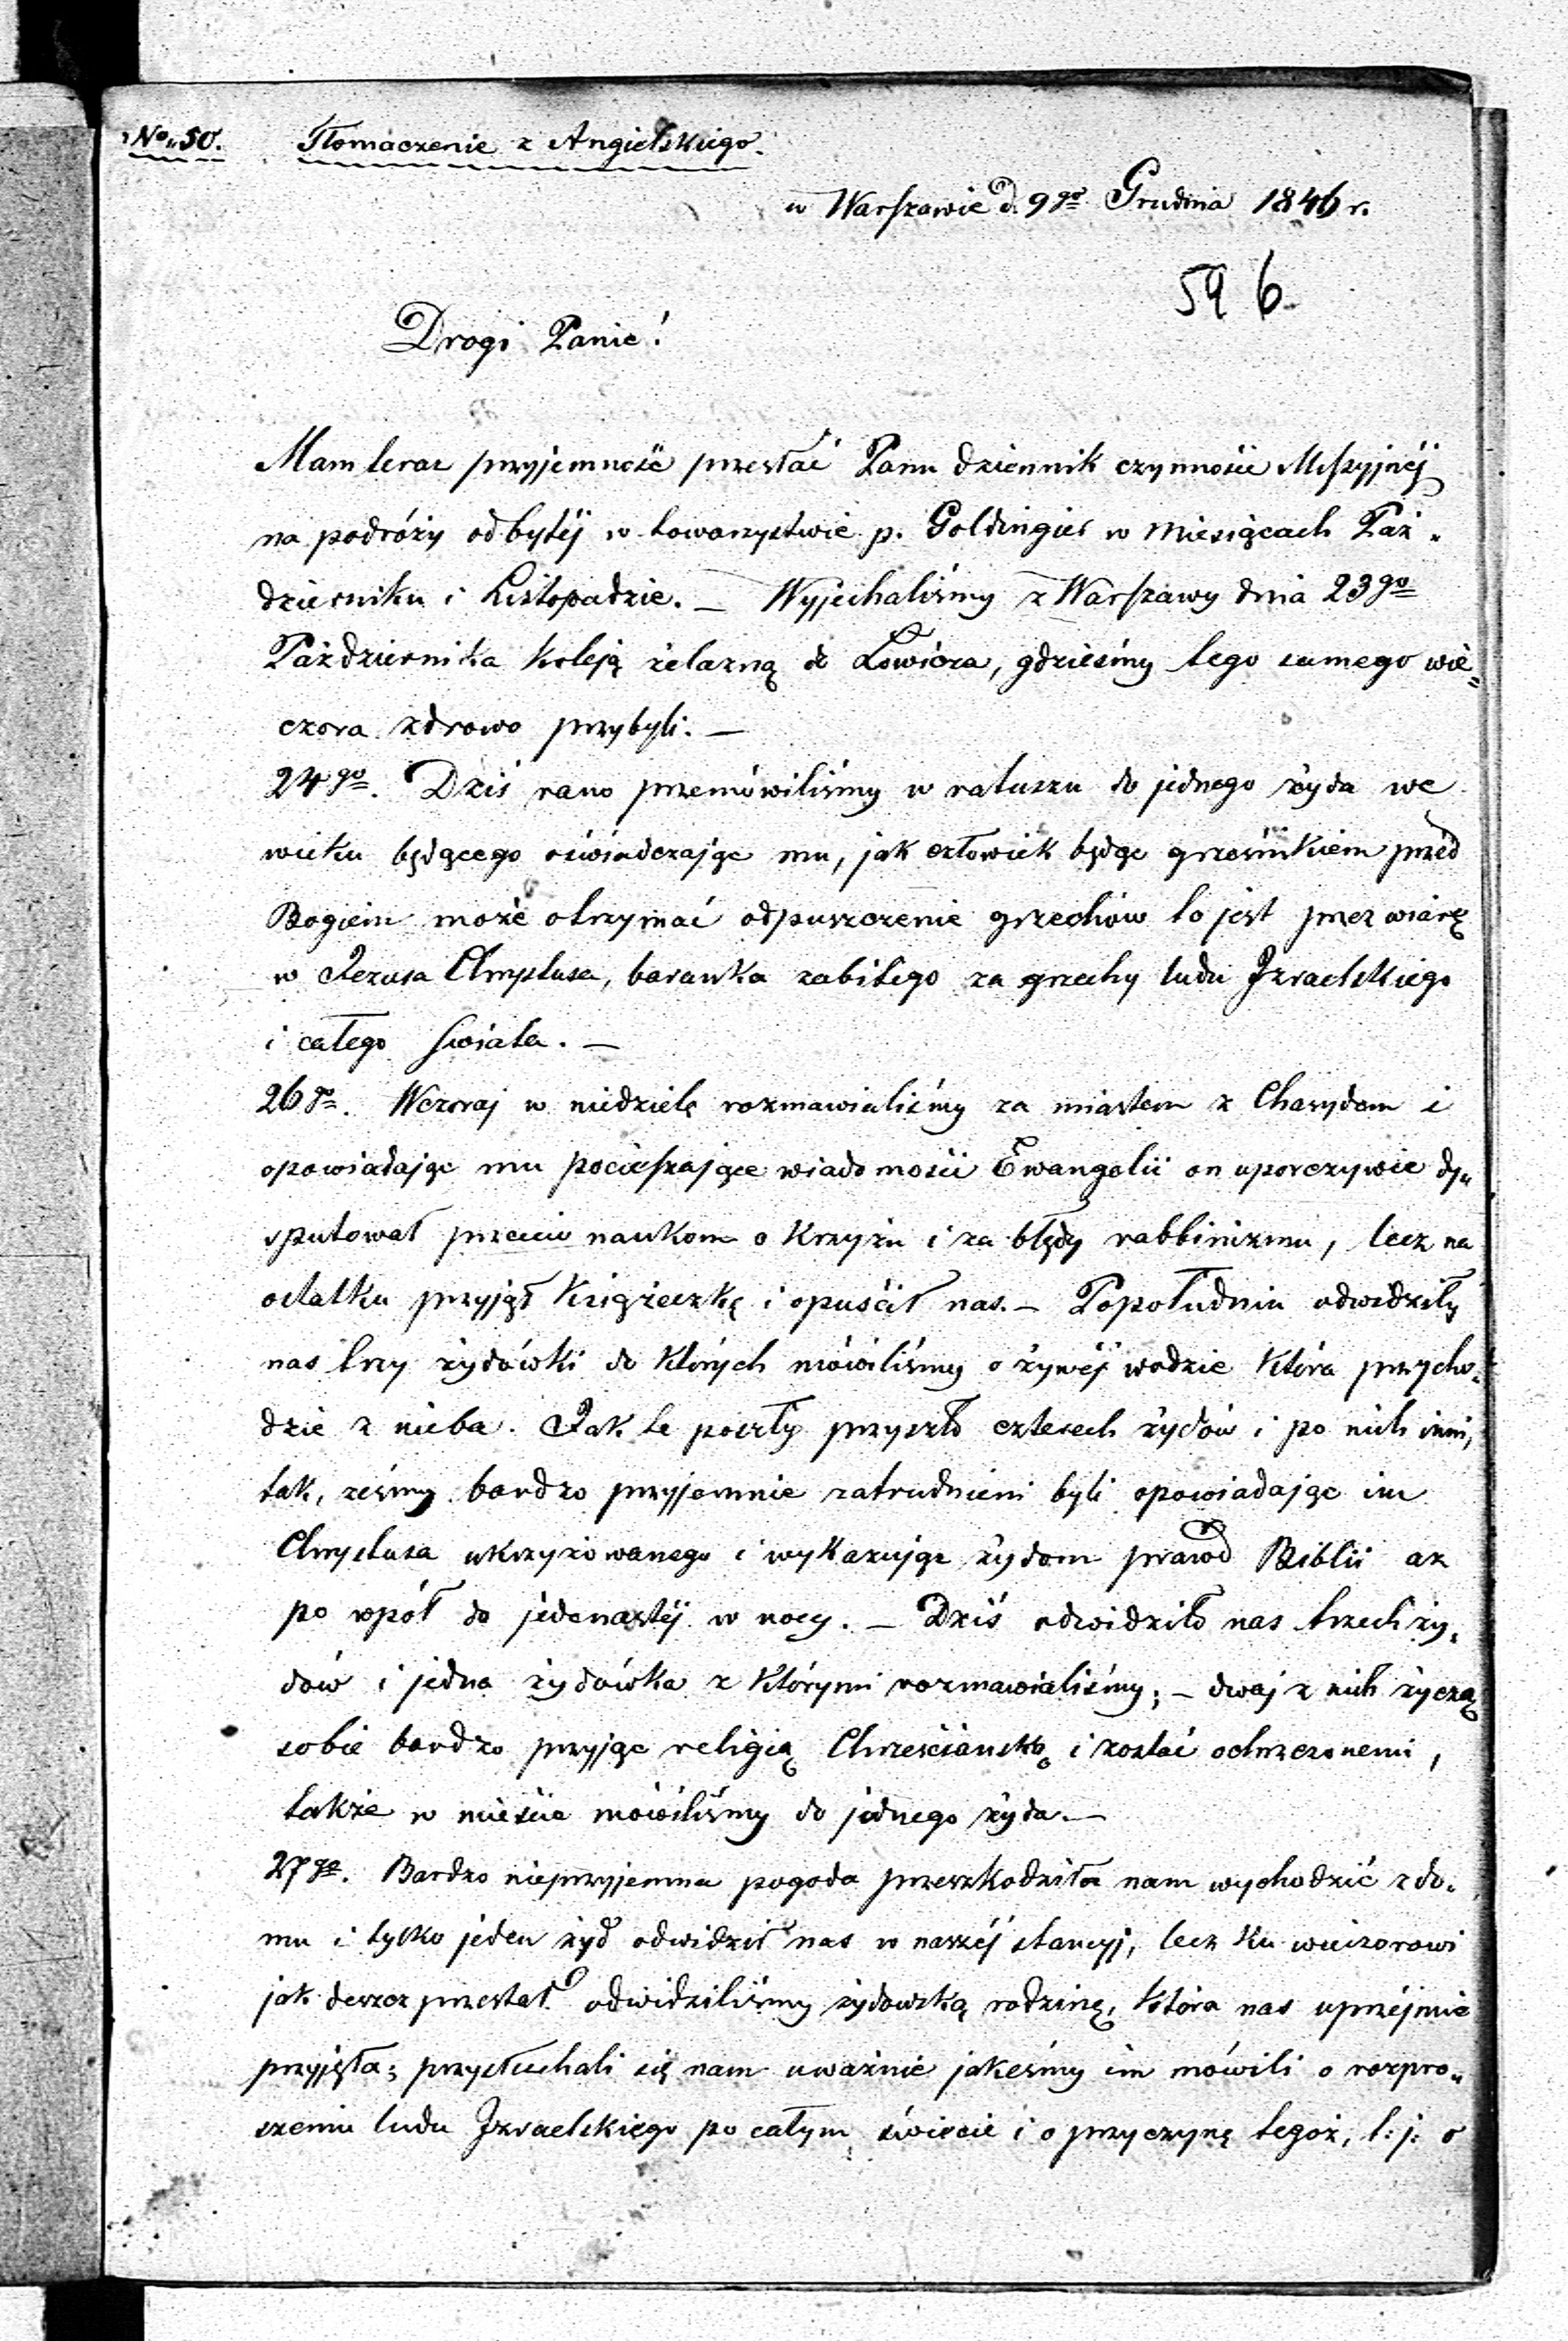 No. 50. Tłomaczenie z Angielskiego.
w Warszawie d. 9go Grudnia 1846 r.
596
Drogi Panie!
Mam teraz przyjemność przesłać Panu dziennik czynności Missyjnéj
na podróży odbytéj w towarzystwie p. Goldingier w miesiącach Paź„
dzierniku i Listopadzie. — Wyjechaliśmy z Warszawy dnia 23go
Października koleją żelazną do Łowicza, gdzieśmy tego samego wie„
czora zdrowo przybyli. —
24go. Dziś rano przemówiliśmy w ratuszu do jednego żyda we
wieku będącego oświadczając mu, jak człowiek będąc grzesznikiem przed
Bogiem może otrzymać odpuszczenie grzechów to jest przez wiarę
w Jezusa Chrystusa, baranka zabitego za grzechy ludu Izraelskiego
i całego świata. —
26go. Wczoraj w niedzielę rozmawialiśmy za miastem z Chasydem i
opowiadając mu pocieszające wiadomości Ewangelii on uporczywie dy„
sputował przeciw naukom o krzyżu i za błędy rabbinizmu, lecz na
ostatku przyjął książeczkę i opuścił nas. — Popołudniu odwidziły
nas trzy żydówki do których mówiliśmy o żywéj wodzie która przycho„
dzie z nieba. Jak te poszły przyszło czterech żydów i po nich inni,
tak, żeśmy bardzo przyjemnie zatrudnieni byli opowiadając im
Chrystusa ukrzyżowanego i wykazując żydom prawd Biblii aż
po wpół do jedenastéj w nocy. — Dziś odwidziło nas trzech ży„
dów i jedna żydówka z którymi rozmawialiśmy; — dwaj z nich życzą
sobie bardzo przyjąc religią Chrześciańską i zostać ochrzczonemi,
także w mieście mówiliśmy do jednego żyda. —
27go. Bardzo nieprzyjemna pogoda przeszkodziła nam wychodzić z do„
mu i tylko jeden żyd odwidził nas w naszéj stancyj, lecz ku wieczorowi
jak deszcz przestał odwidziliśmy żydowską rodzinę, która nas uprzéjmie
przyjęła; przysłuchali się nam uważnie jakeśmy im mówili o rozpro„
szeniu ludu Izraelskiego po całym świecie i o przyczynę tegoż, t: j: o